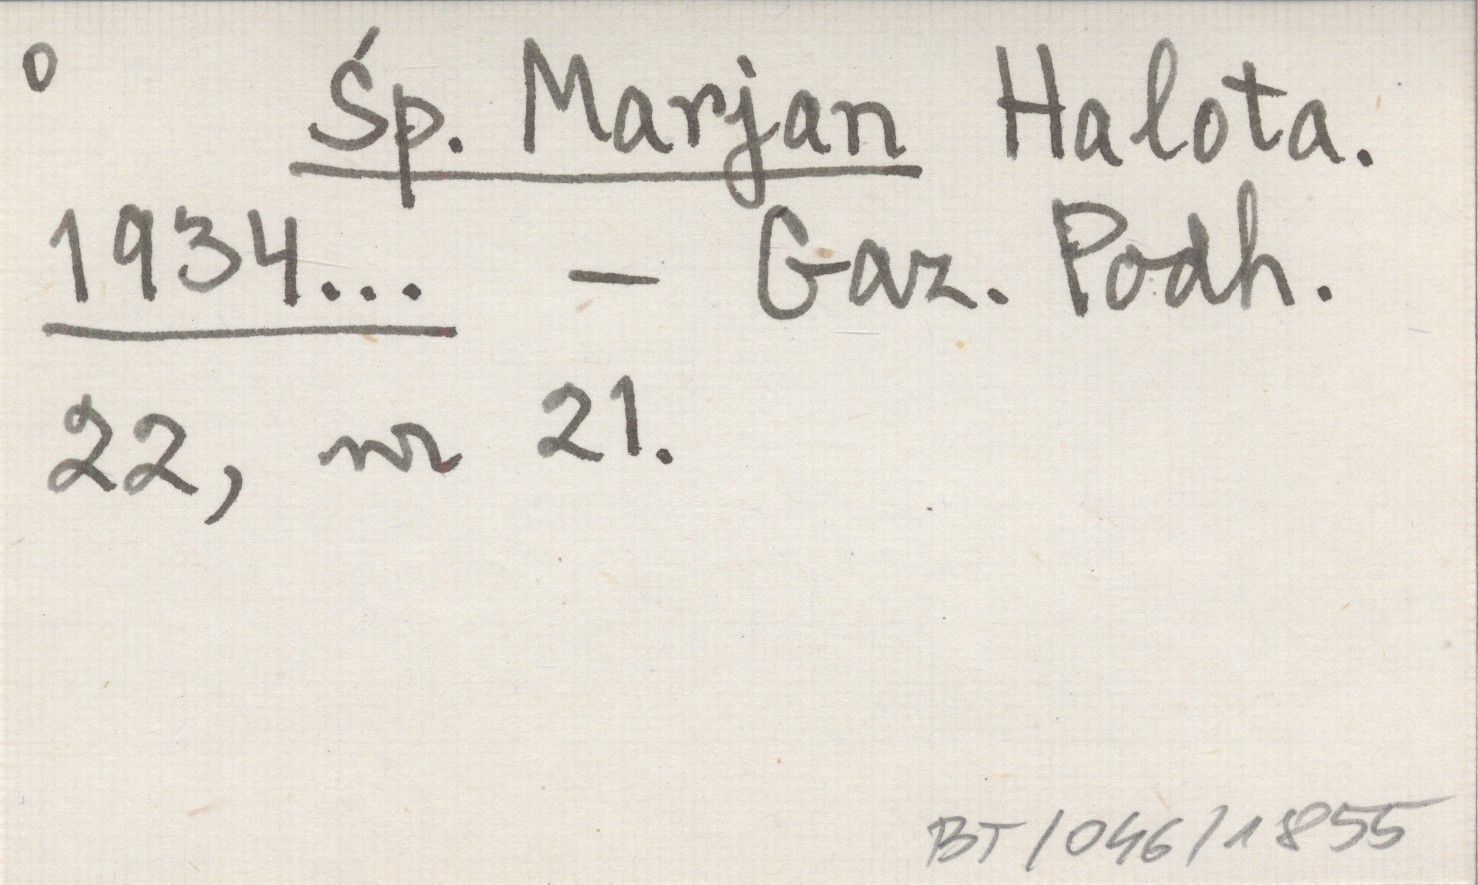 o Śp. Marjan Halota.
1934... — Gaz. Podh.
22, nr 21.
BT/046/1855